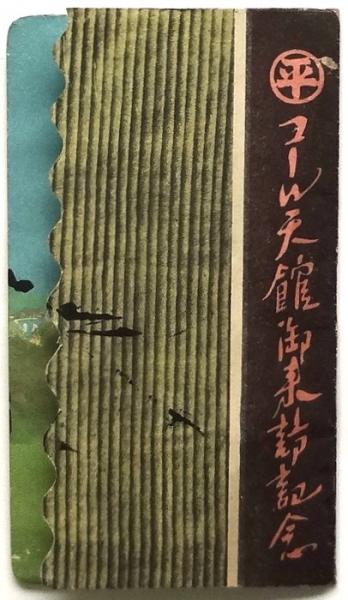 平
コール天館御来訪記念